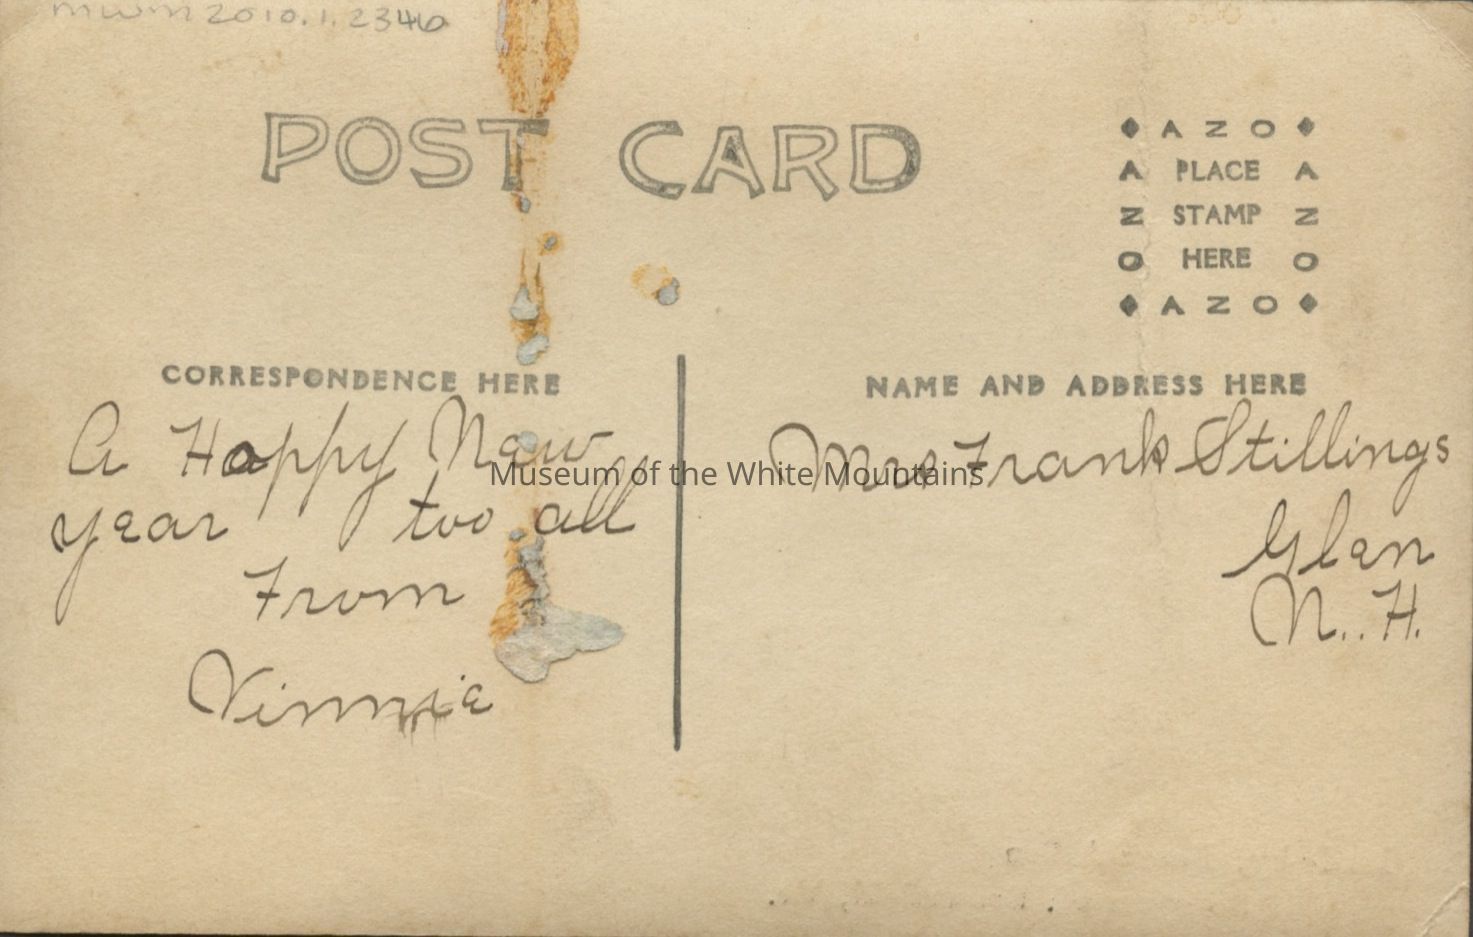 mwm2010.1.2346
POST CARD
AZO
A PLACE A
Z STAMP Z
O HERE O
AZO
CORRESPONDENCE HERE
A Happy New
year too all
From
Vinnie
NAME AND ADDRESS HERE
Mrs Frank Stillings
Glen
N..H.
Museum of the White Mountains